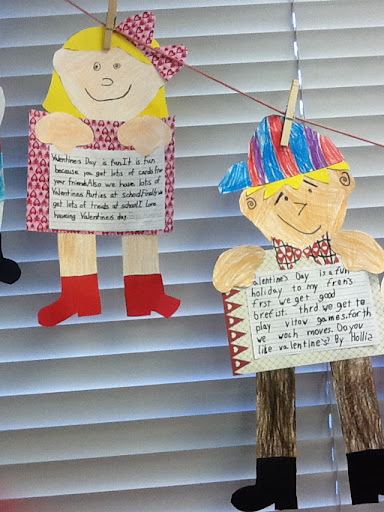 Valentines Day is fun.It is fun
because you get lots of cards for
your friends.Also we have lots of
Valentines Parties at school.Finally we
get lots of treats at school.I Love
haveing Valentine's day.
alentine's Day is a fun
holiday to my frens
frst we get good
brefist. thrd we get to
play vitow games.forth
we woch moves. Do you
like valentine's? By Hollis